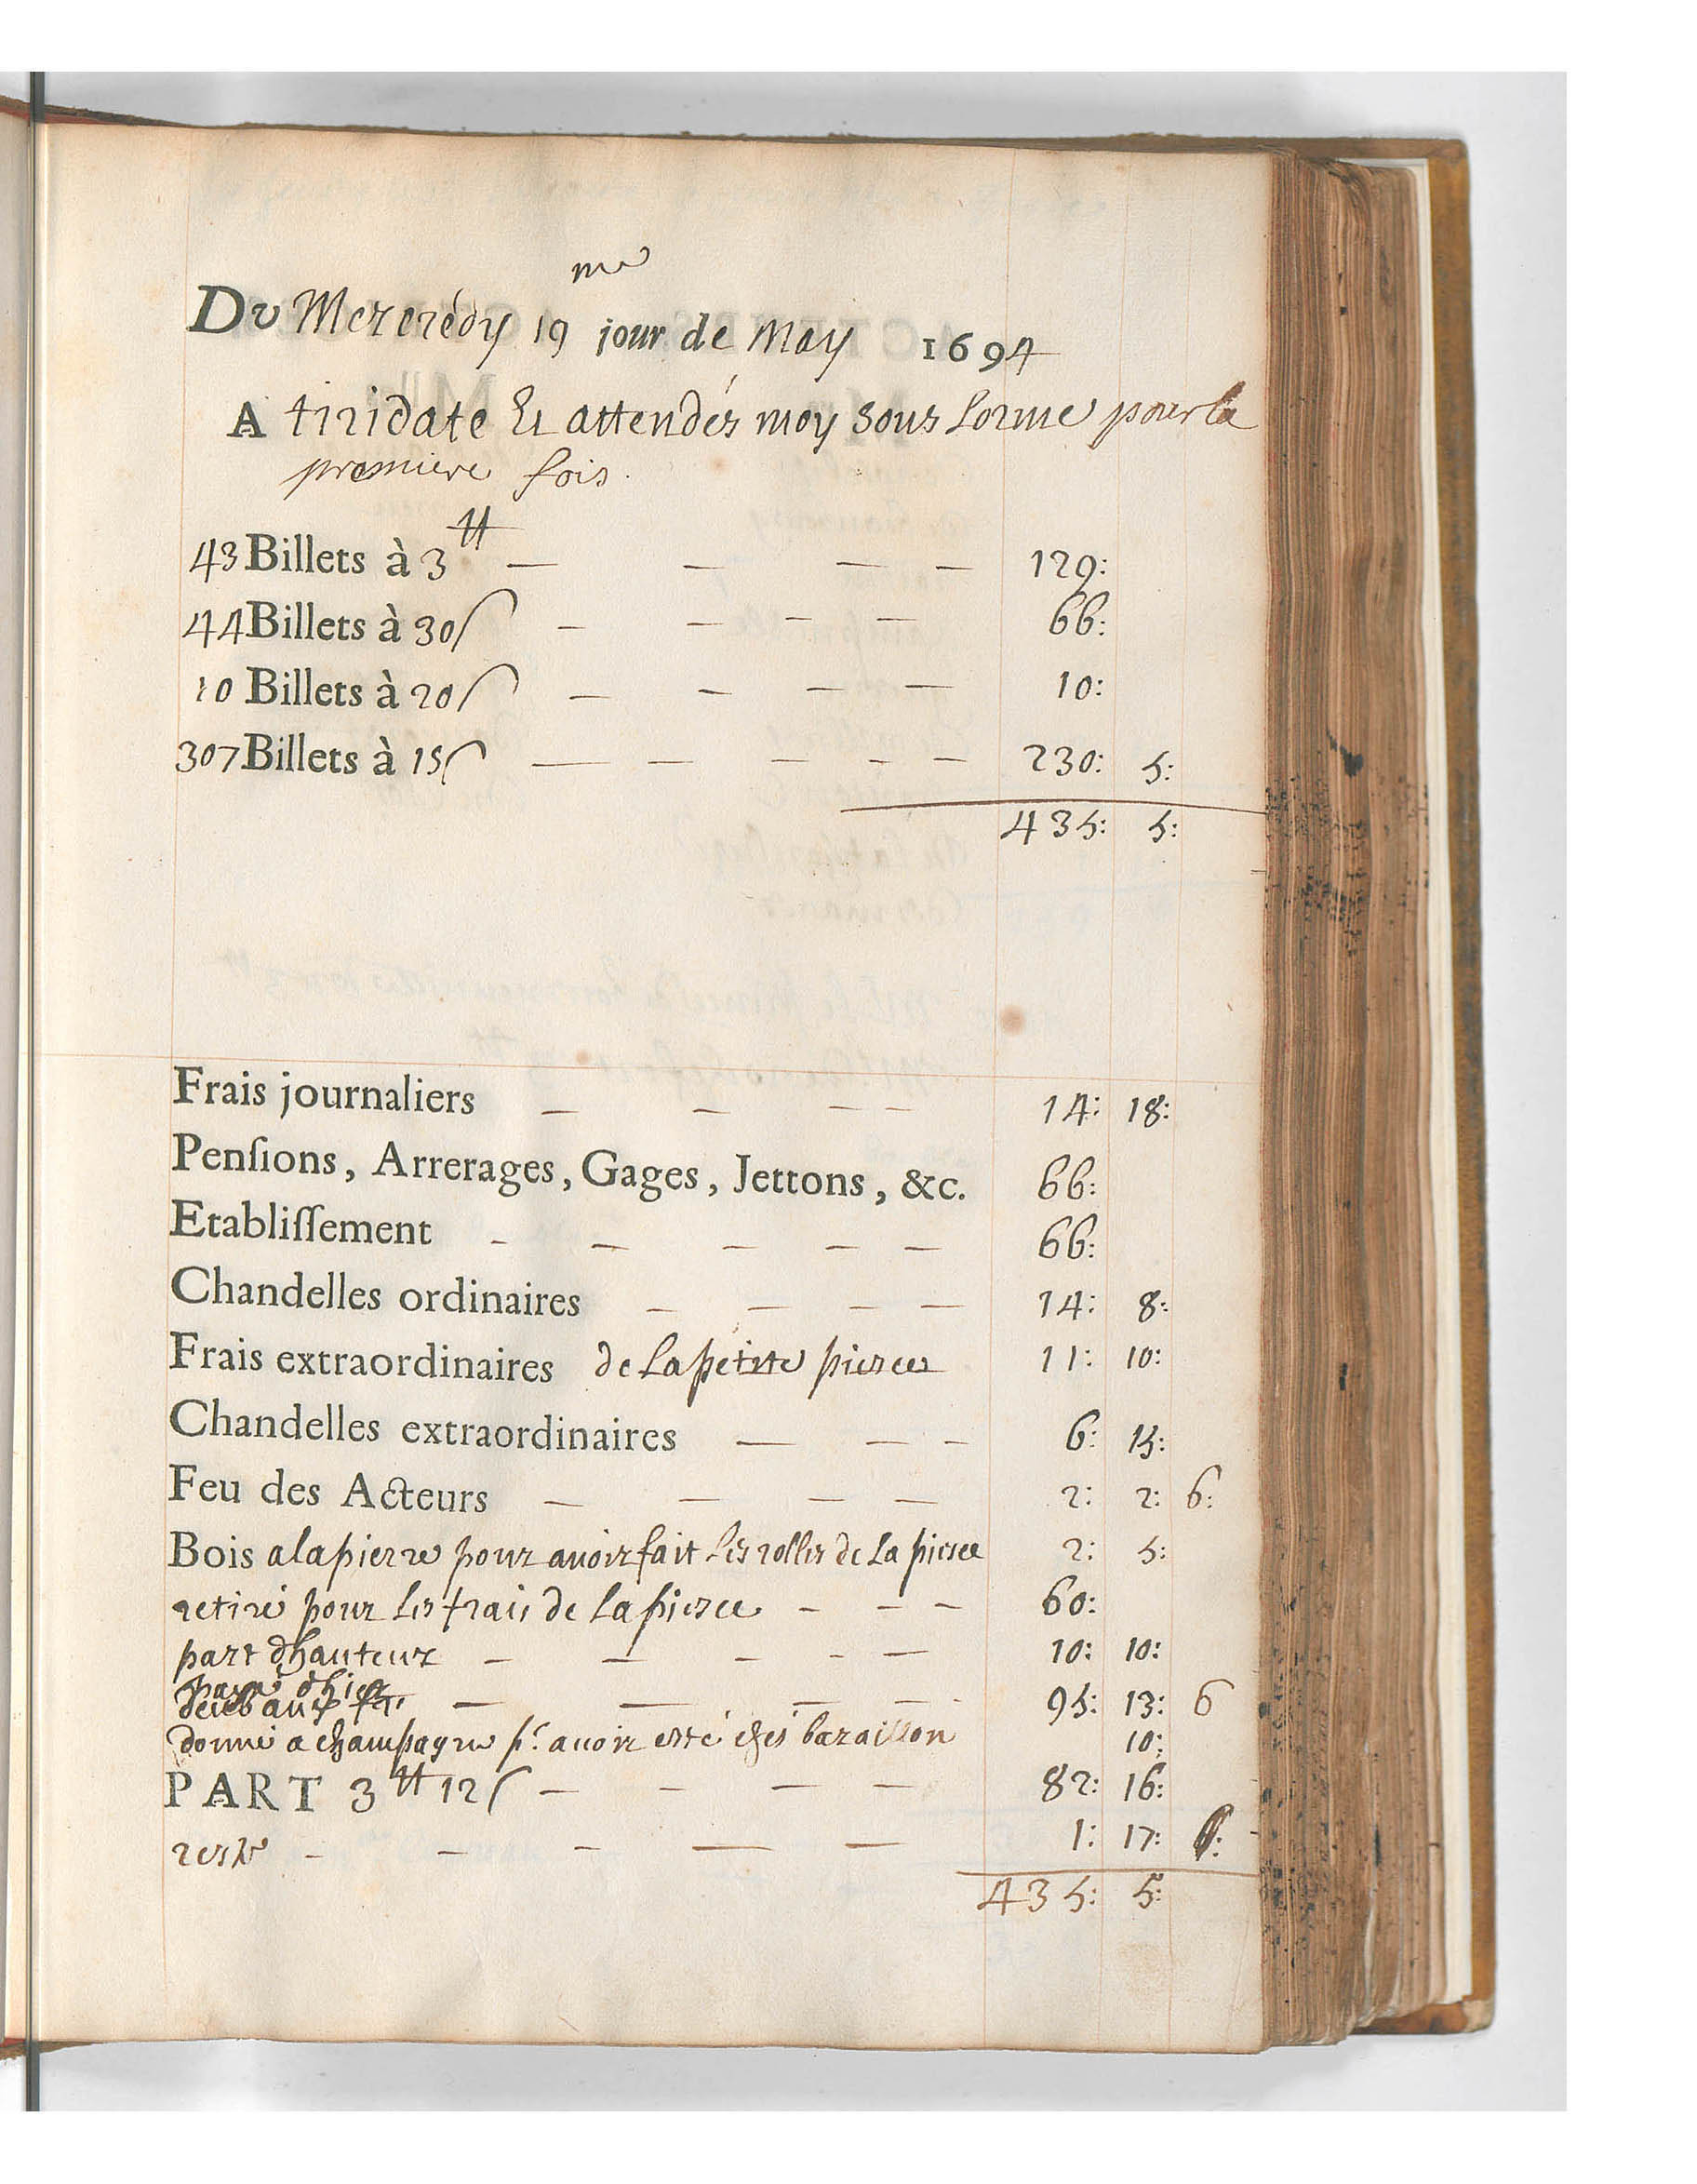 me
Du Mercredy 19 jour de May 1694
A tiridate Et attendés moy sous Lorme pour la
premiere fois.
43 Billets à 3 ₶ — — — — 129:
44 Billets à 30 ſ — — — — 66:
10 Billets à 20 ſ — — — — 10:
307 Billets à 15 ſ — — — — — 230: 5:
435: 5:
Frais journaliers — — — — 14: 18:
Penſions, Arrerages, Gages, Jettons, &c. 66:
Etabliſſement - — — — — 66:
Chandelles ordinaires — — — — 14: 8:
Frais extraordinaires de La petitte piesce 11: 10:
Chandelles extraordinaires — — - 6: 15:
Feu des Acteurs — — — — 2: 2: 6:
Bois a lapierre pour avoir fait Les rolles de La piesce 2: 5:
retiré pour Les frais de La piesce - — — 60:
part dhauteur — — — - — 10: 10:
dhier — — — — 95: 13: 6
donné a champagne pr. avoir esté chés baraillon 10:
PART 3 ₶ 12 ſ — — — — 82: 16:
reste - — - — — 1: 17:
435: 5: